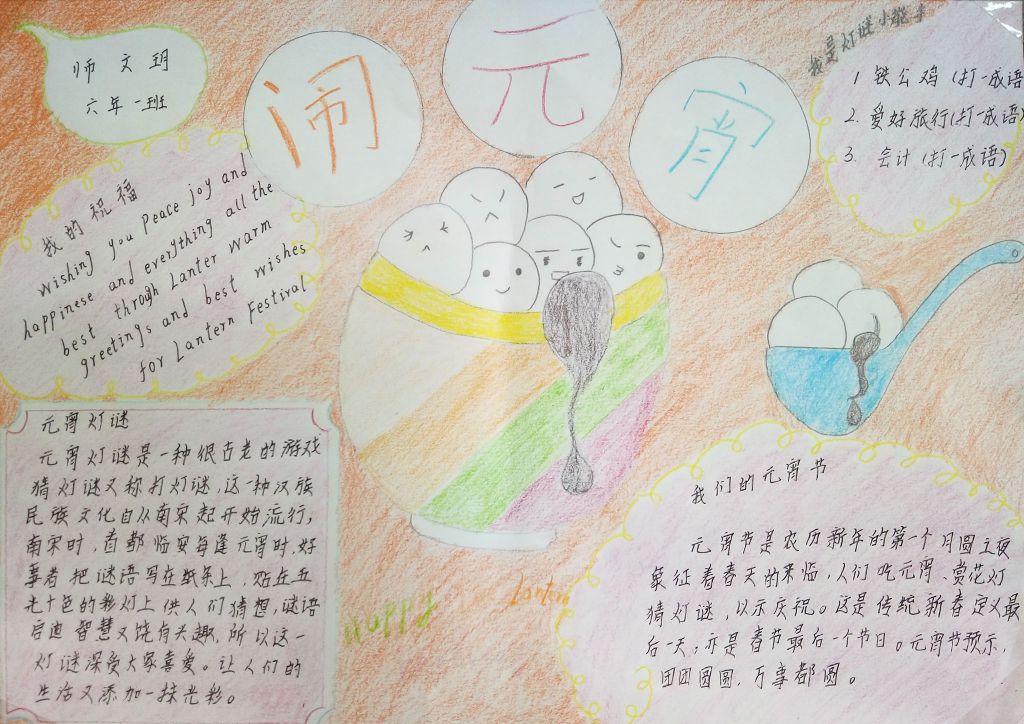 师文玥
六年一班
闹元宵
我是灯谜小能手
1 铁公鸡(打一成语
2. 爱好旅行(打一成语)
3. 会计(打一成语)
我的祝福
wishing you peace joy and
happinese and everything all the
best through Lanter warm
greetings and best wishes
for Lantern Festival
元宵灯谜
元宵灯谜是一种很古老的游戏
猜灯谜又称打灯谜,这一种汉族
民族文化自从南宋起开始流行,
南宋时,首都临安每逢元宵时,好
事者把谜语写在纸条上,贴在五
光十色的彩灯上供人们猜想,谜语
启迪智慧又饶有兴趣,所以这一
灯谜深受大家喜爱。让人们的
生活又添加一抹光彩。
Happy
Lantern
我们的元宵节
元宵节是农历新年的第一个月圆之夜
象征着春天的来临,人们吃元宵、赏花灯
猜灯谜,以示庆祝。这是传统新春定义最
后一天,亦是春节最后一个节日。元宵节预示,
团团圆圆,万事都圆。